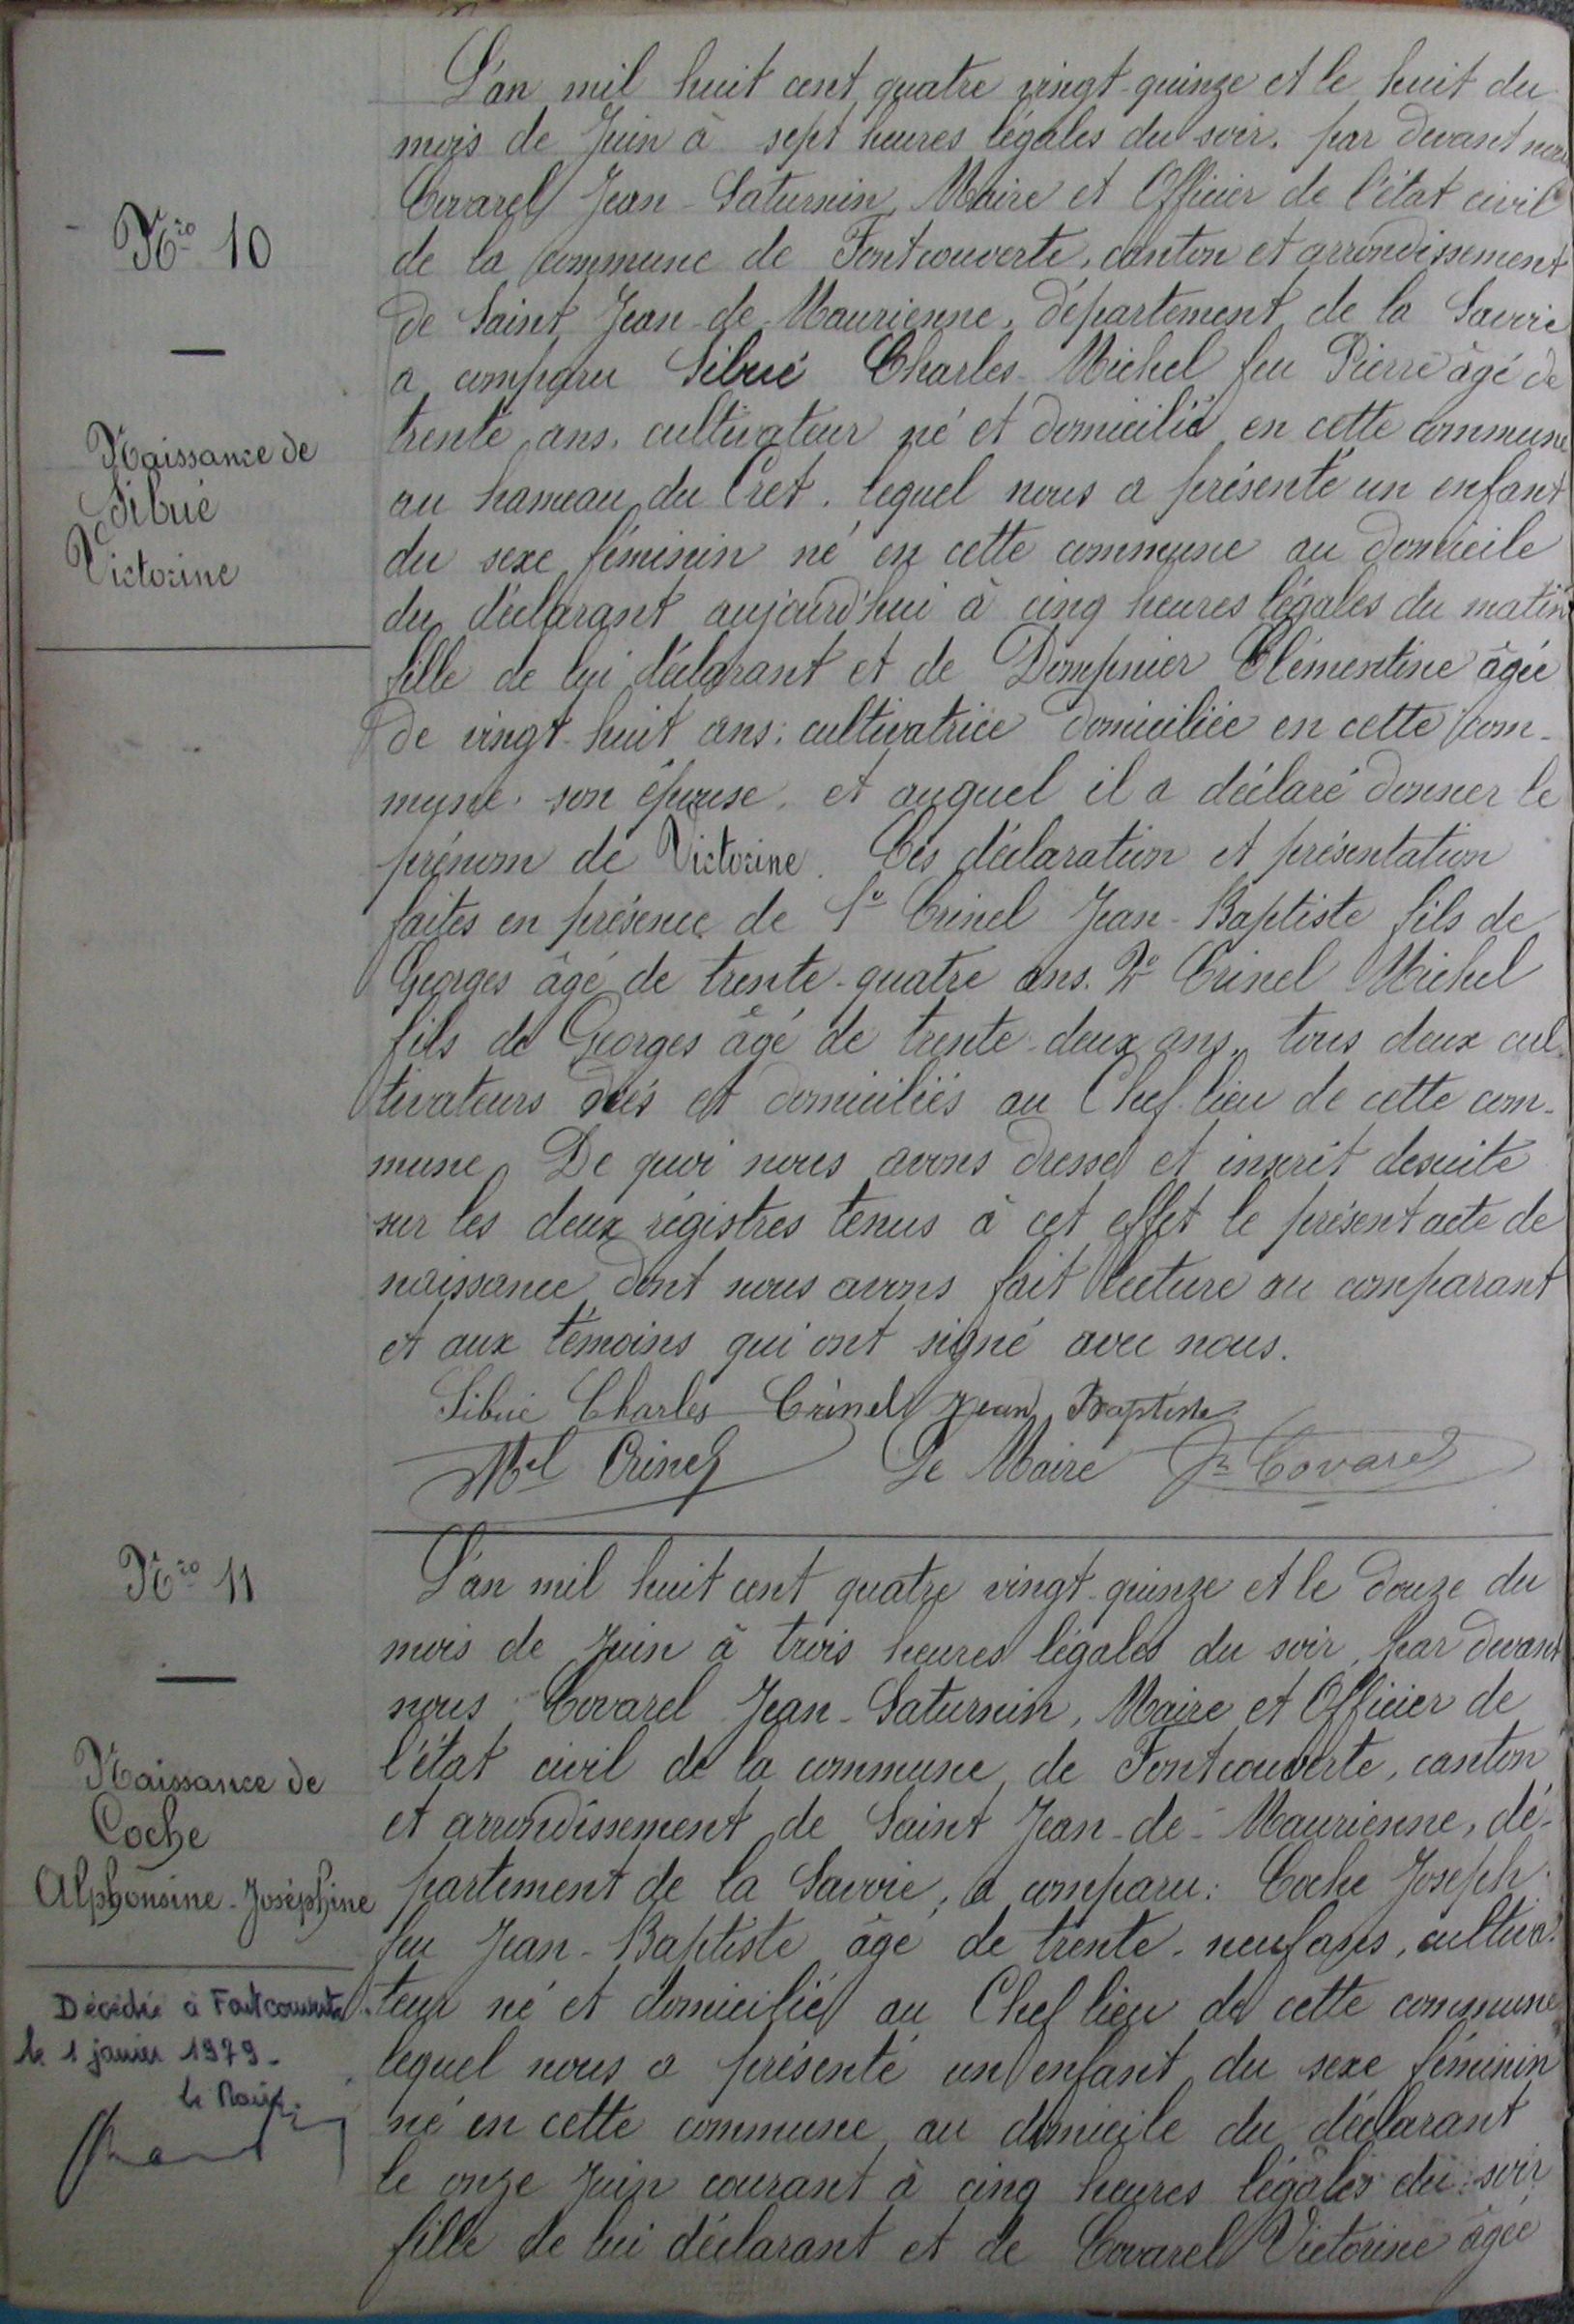 Nro 10
Naissance de
Sibué
Victorine
L'an mil huit cent quatre vingt-quinze et le huit du
mois de Juin à sept heures légales du soir, par devant nous
Covarel Jean-Saturnin, Maire et Officier de l'état civil
de la commune de Fontcouverte, canton et arrondissement
de Saint Jean-de-Maurienne, département de la Savoie
a comparu Sibué Charles-Michel feu Pierre âgé de
trente ans, cultivateur né et domicilié en cette commune
au hameau du Cret, lequel nous a présenté un enfant
du sexe féminin né en cette commune au domicile
du déclarant aujourd'hui à cinq heures légales du matin
fille de lui déclarant et de Dompnier Clémentine âgée
de vingt-huit ans, cultivatrice domiciliée en cette com-
mune, son épouse, et auquel il a déclaré donner le
prénom de Victorine. Ces déclaration et présentation
faites en présence de 1o Crinel Jean-Baptiste fils de
Georges âgé de trente-quatre ans. 2o Crinel Michel
fils de Georges âgé de trente-deux ans, tous deux cul-
tivateurs nés et domiciliés au Chef-lieu de cette com-
mune. De quoi nous avons dressé et inscrit desuite
sur les deux régistres tenus à cet effet le présent acte de
naissance dont nous avons fait lecture au comparant
et aux témoins qui ont signé avec nous.
Sibué Charles Crinel Jean Baptiste
Mel Crinel Le Maire Jn Covarel
Nro 11
Naissance de
Coche
Alphonsine-Joséphine
Décédée à Fontcouverte
le 1 janvier 1979.
le Maire
L'an mil huit cent quatre vingt-quinze et le douze du
mois de Juin à trois heures légales du soir, par devant
nous Covarel Jean-Saturnin, Maire et Officier de
l'état civil de la commune de Fontcouverte, canton
et arrondissement de Saint Jean-de-Maurienne, dé-
partement de la Savoie, a comparu: Coche Joseph
feu Jean-Baptiste âgé de trente-neuf ans, cultiva-
teur né et domicilié au Chef lieu de cette commune
lequel nous a présenté un enfant du sexe féminin
né en cette commune au domicile du déclarant
le onze Juin courant à cinq heures légales du soir
fille de lui déclarant et de Covarel Victorine âgée